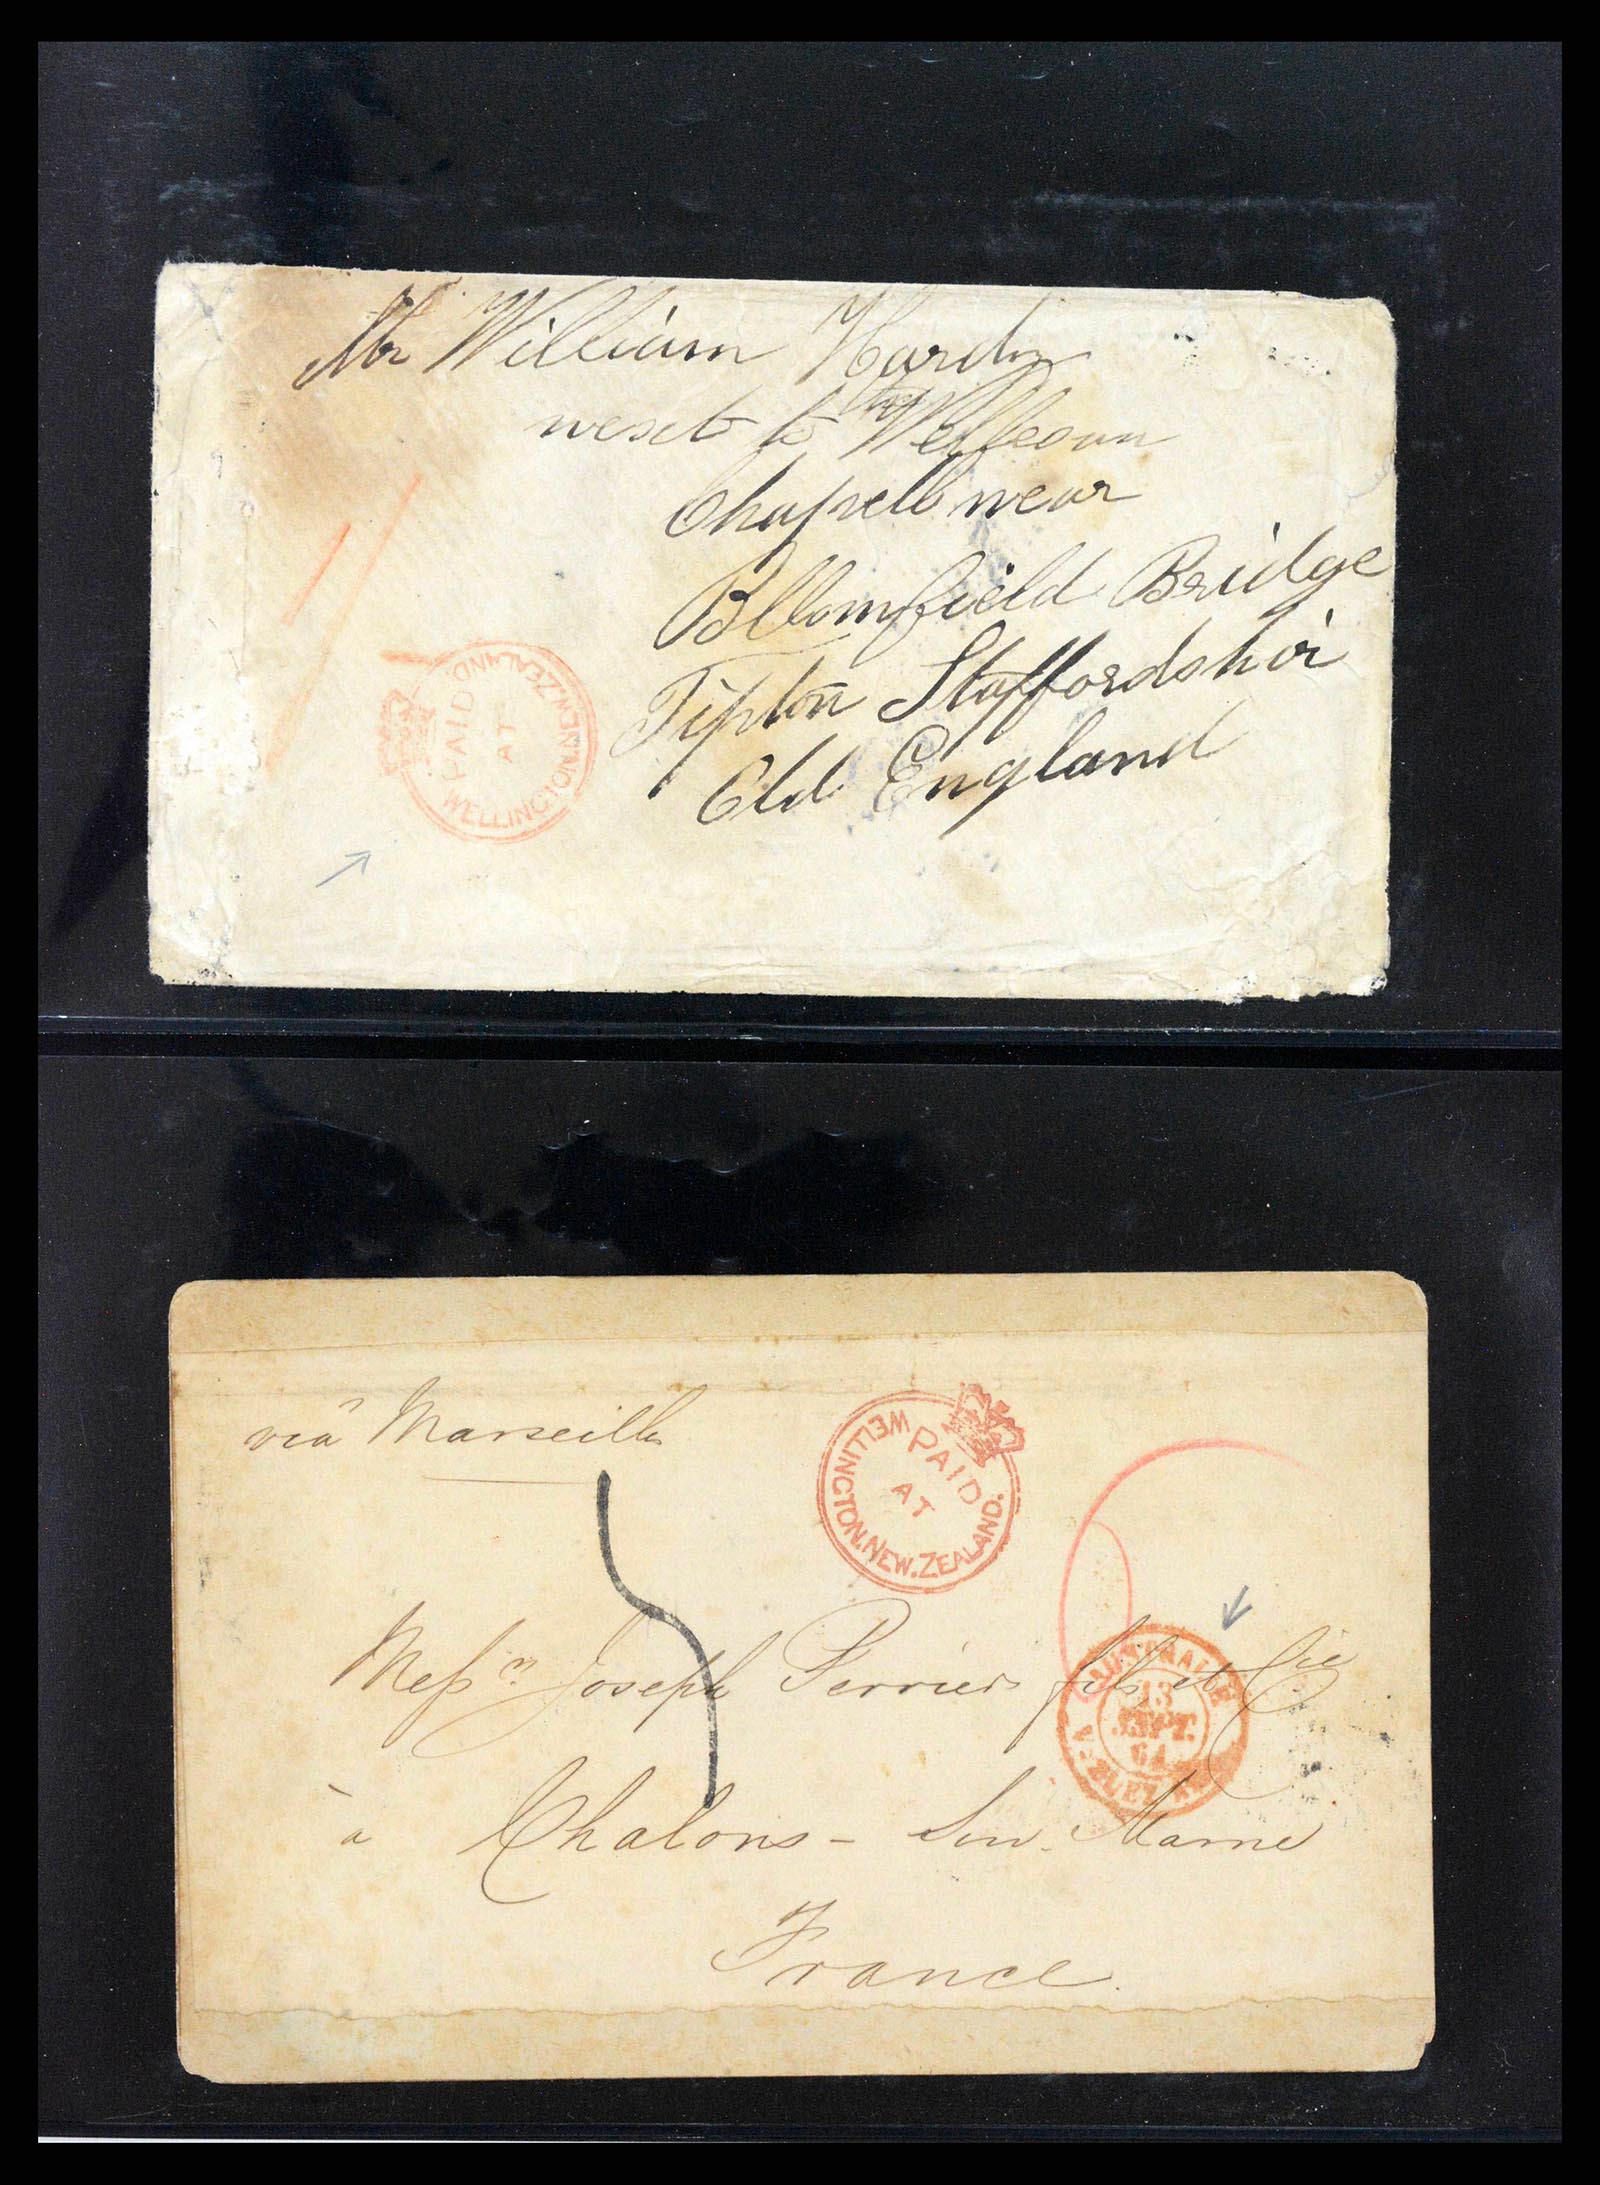 Mr William Hardy
next to the Wellesoun
Chapell near
Bllomfield Bridge
Tipton Staffordshir
Old England
PAID
AT
WELLINGTON.NEW.ZEALAND.
via Marseille
PAID
AT
WELLINGTON.NEW.ZEALAND.
Messrs Joseph Perrier fils et Cie
13
SEPT.
64
à Chalons - Sur Marne
France